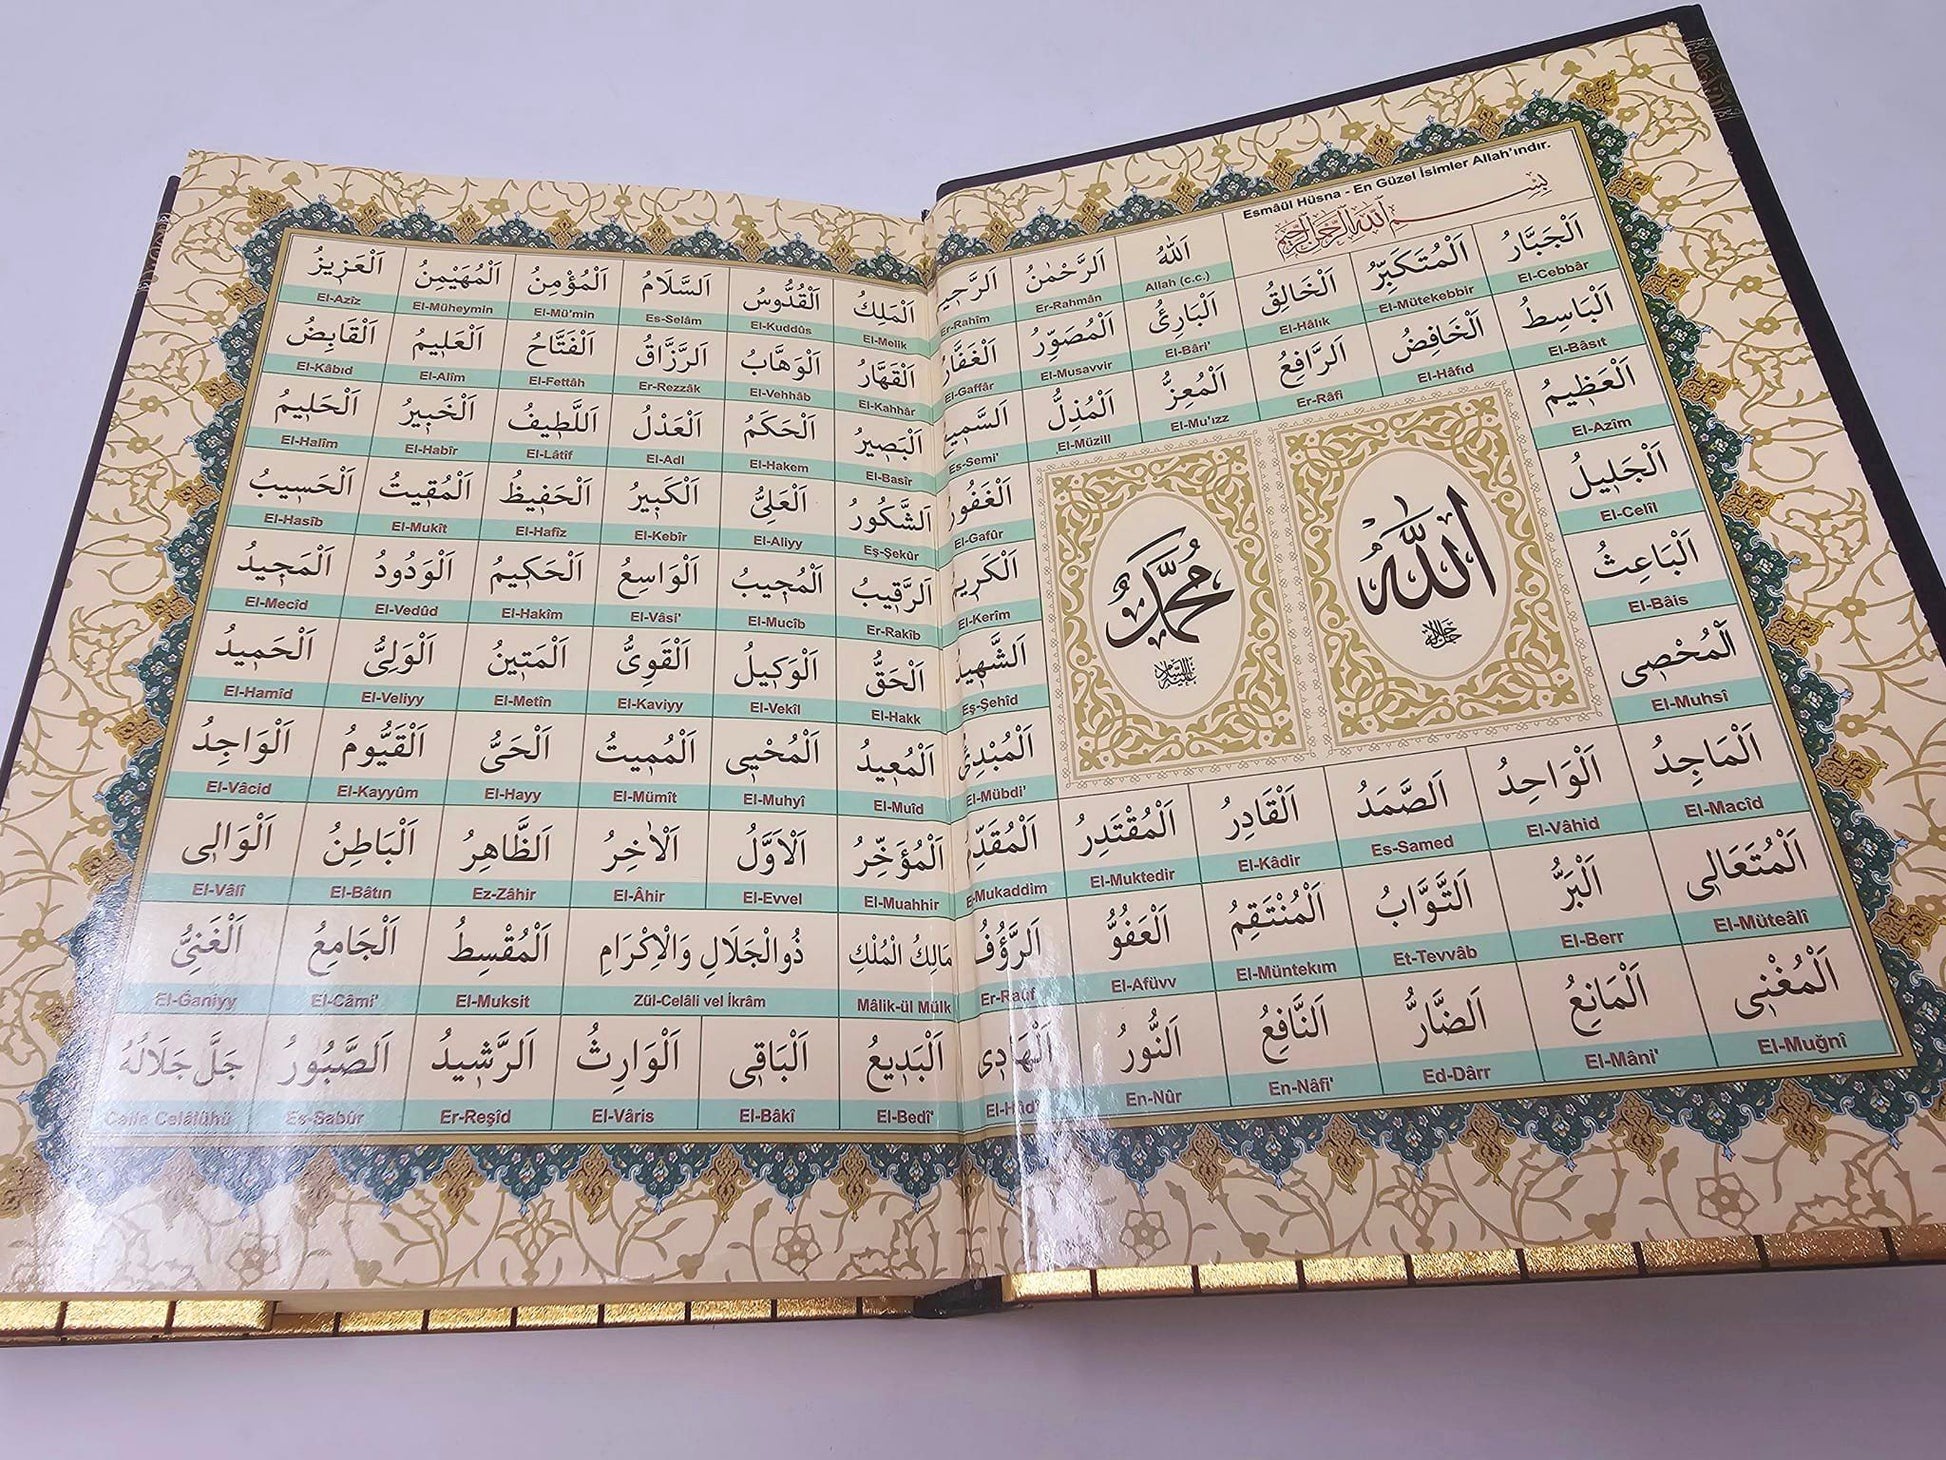 Esmâül Hüsna - En Güzel İsimler Allah'ındır.
بِسْمِ اللهِ الرَّحْمٰنِ الرَّحِيمِ
اَللهُ اَلرَّحْمٰنُ اَلرَّحِيمُ اَلْمَلِكُ اَلْقُدُّوسُ اَلسَّلَامُ اَلْمُؤْمِنُ اَلْمُهَيْمِنُ اَلْعَزِيزُ
Allah (c.c.) Er-Rahmân Er-Rahîm El-Melik El-Kuddûs Es-Selâm El-Mü'min El-Müheymin El-Azîz
اَلْجَبَّارُ اَلْمُتَكَبِّرُ اَلْخَالِقُ اَلْبَارِئُ اَلْمُصَوِّرُ اَلْغَفَّارُ اَلْقَهَّارُ اَلْوَهَّابُ اَلرَّزَّاقُ اَلْفَتَّاحُ اَلْعَلِيمُ اَلْقَابِضُ
El-Cebbâr El-Mütekebbir El-Hâlık El-Bâri' El-Musavvir El-Gaffâr El-Kahhâr El-Vehhâb Er-Rezzâk El-Fettâh El-Alîm El-Kâbıd
اَلْبَاسِطُ اَلْخَافِضُ اَلرَّافِعُ اَلْمُعِزُّ اَلْمُذِلُّ اَلسَّمِيعُ اَلْبَصِيرُ اَلْحَكَمُ اَلْعَدْلُ اَللَّطِيفُ اَلْخَبِيرُ اَلْحَلِيمُ
El-Bâsıt El-Hâfıd Er-Râfi El-Mu'ızz El-Müzill Es-Semi' El-Basîr El-Hakem El-Adl El-Lâtîf El-Habîr El-Halîm
اَلْعَظِيمُ اَلْغَفُورُ اَلشَّكُورُ اَلْعَلِيُّ اَلْكَبِيرُ اَلْحَفِيظُ اَلْمُقِيتُ اَلْحَسِيبُ
El-Azîm El-Gafûr Eş-Şekûr El-Aliyy El-Kebîr El-Hafîz El-Mukît El-Hasîb
اَلْجَلِيلُ اَلْكَرِيمُ اَلرَّقِيبُ اَلْمُجِيبُ اَلْوَاسِعُ اَلْحَكِيمُ اَلْوَدُودُ اَلْمَجِيدُ
El-Celîl El-Kerîm Er-Rakîb El-Mucîb El-Vâsi' El-Hakîm El-Vedûd El-Mecîd
اَلْبَاعِثُ اَلشَّهِيدُ اَلْحَقُّ اَلْوَكِيلُ اَلْقَوِيُّ اَلْمَتِينُ اَلْوَلِيُّ اَلْحَمِيدُ
El-Bâis Eş-Şehîd El-Hakk El-Vekîl El-Kaviyy El-Metîn El-Veliyy El-Hamîd
اَلْمُحْصِي اَلْمُبْدِئُ اَلْمُعِيدُ اَلْمُحْيِي اَلْمُمِيتُ اَلْحَيُّ اَلْقَيُّومُ اَلْوَاجِدُ
El-Muhsî El-Mübdi' El-Muîd El-Muhyî El-Mümît El-Hayy El-Kayyûm El-Vâcid
الله
جل جلاله
محمد
عليه السلام
اَلْمَاجِدُ اَلْوَاحِدُ اَلصَّمَدُ اَلْقَادِرُ اَلْمُقْتَدِرُ اَلْمُقَدِّمُ اَلْمُؤَخِّرُ اَلْاَوَّلُ اَلْاٰخِرُ اَلظَّاهِرُ اَلْبَاطِنُ اَلْوَالِي
El-Macîd El-Vâhid Es-Samed El-Kâdir El-Muktedir El-Mukaddim El-Muahhir El-Evvel El-Âhir Ez-Zâhir El-Bâtın El-Vâlî
اَلْمُتَعَالِي اَلْبَرُّ اَلتَّوَّابُ اَلْمُنْتَقِمُ اَلْعَفُوُّ اَلرَّؤُفُ مَالِكُ الْمُلْكِ ذُوالْجَلَالِ وَالْاِكْرَامِ اَلْمُقْسِطُ اَلْجَامِعُ اَلْغَنِيُّ
El-Müteâlî El-Berr Et-Tevvâb El-Müntekım El-Afüvv Er-Raûf Mâlik-ül Mülk Zül-Celâli vel İkrâm El-Muksit El-Câmi' El-Ğaniyy
اَلْمُغْنِي اَلْمَانِعُ اَلضَّارُّ اَلنَّافِعُ اَلنُّورُ اَلْهَادِي اَلْبَدِيعُ اَلْبَاقِي اَلْوَارِثُ اَلرَّشِيدُ اَلصَّبُورُ جَلَّ جَلَالُهُ
El-Muğnî El-Mâni' Ed-Dârr En-Nâfi' En-Nûr El-Hâdî El-Bedî' El-Bâkî El-Vâris Er-Reşîd Es-Sabûr Celle Celâlühü